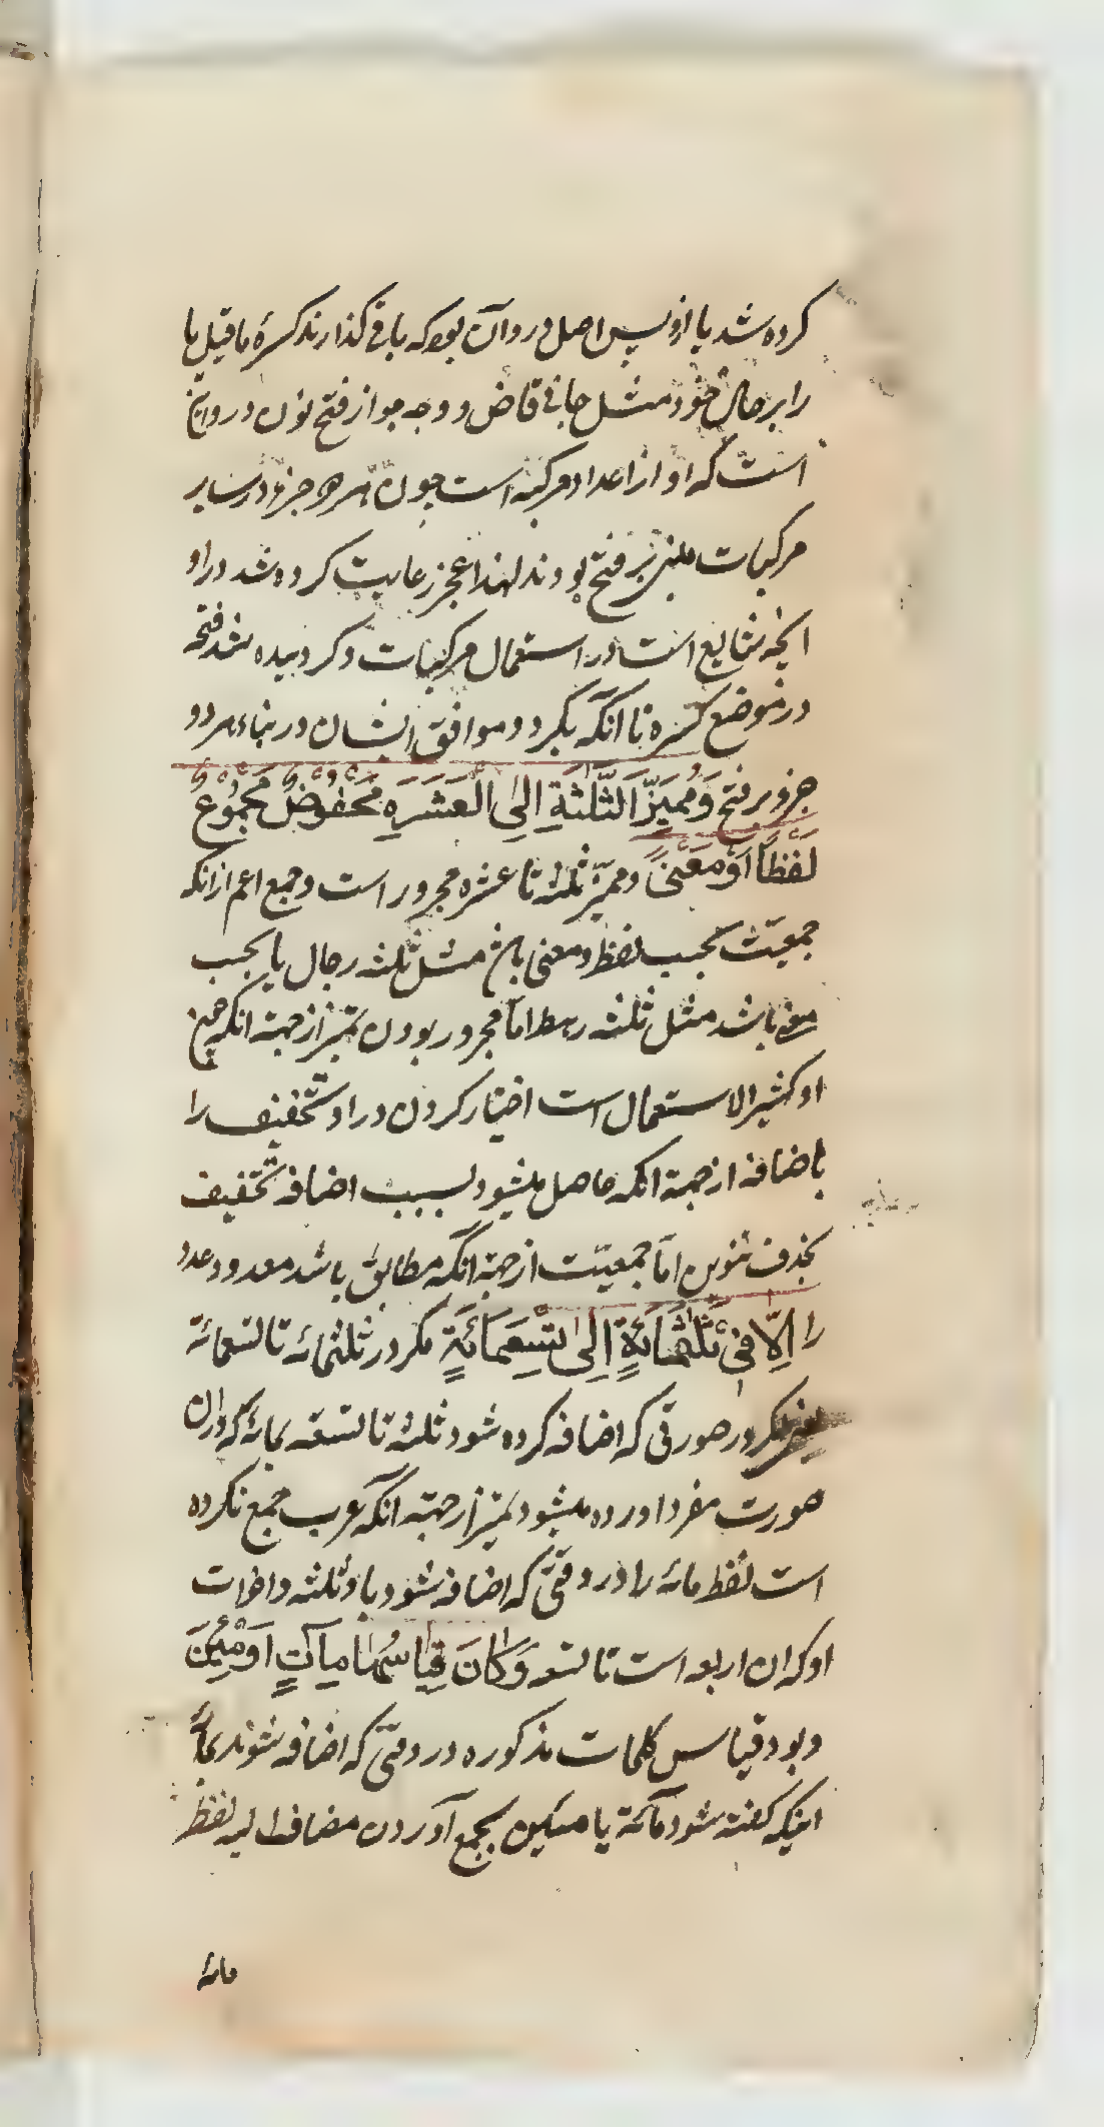 کرده شد یا ازو پس اصل درو آن بود که باقی گذارند کسرهٔ ماقبل یا
را بر حال خود مثل جانی قاض و وجه جواز فتح نون درو این
است که او از اعداد مرکبه است چون هر جزو در سایر
مرکبات مبنی بر فتح بودند لهذا عجز رعایت کرده شد در او
انچه شایع است در استعمال مرکبات و کردیده شد فتحه
در موضع کسره تا انکه بکردد موافق ایشان در بناء هر دو
جزو بر فتح وَمُمَیِّزُ الثَّلٰثَةِ اِلَی الْعَشَرَةِ مَخْفُوْضٌ مَجْمُوْعٌ
لَفْظًا اَوْ مَعْنًی و ممیّز ثلثه تا عشره مجرور است و جمع اعم ازانکه
جمعیّت بحسب لفظ و معنی باشد مثل ثلثه رجال یا بحسب
معنی باشد مثل ثلثه رهط امّا مجرور بودن تمیز از جهة انکه چون
او کثیر الاستعمال است اختیار کردن در او تخفیف را
باضافه از جهة انکه حاصل میشود بسبب اضافه تخفیف
بحذف تنوین امّا جمعیّت از جهة انکه مطابق باشد معدود عدد
را اِلَّا فِیْ ثَلٰثِمِائَةٍ اِلٰی تِسْعِمِائَةٍ مکر در ثلثمائه تا تسعمائة
یعنی مکر در صورتی که اضافه کرده شود ثلثه تا تسعه بمائه که دران
صورت مفرد اورده میشود تمیز از جهة انکه عرب جمع نکرده
است لفظ مائه را در وقتی که اضافه شود باو ثلثه و اخوات
او که ان اربعه است تا تسعه وَ کَانَ قِیَاسُهَا مِآتٍ اَوْ مِئِیْنَ
و بود قیاس کلمات مذکوره در وقتی که اضافه شوند بمائه
اینکه کفته شود مآة یا مئین بجمع آوردن مضاف الیه لفظ
مائه